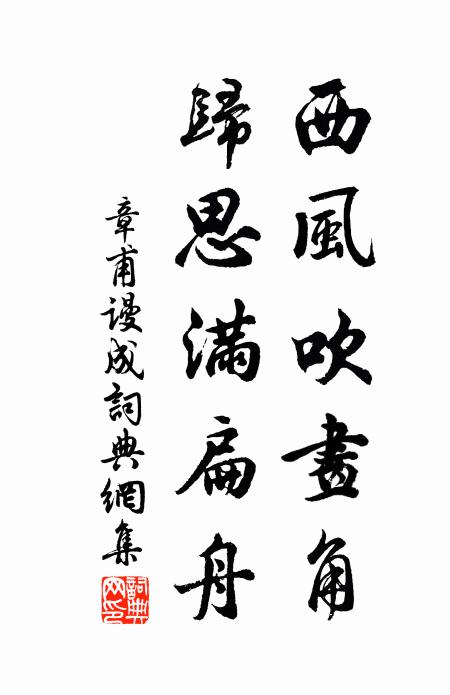 西風吹畫角
歸思滿扁舟
章甫謾成詞典網集
詞典網印